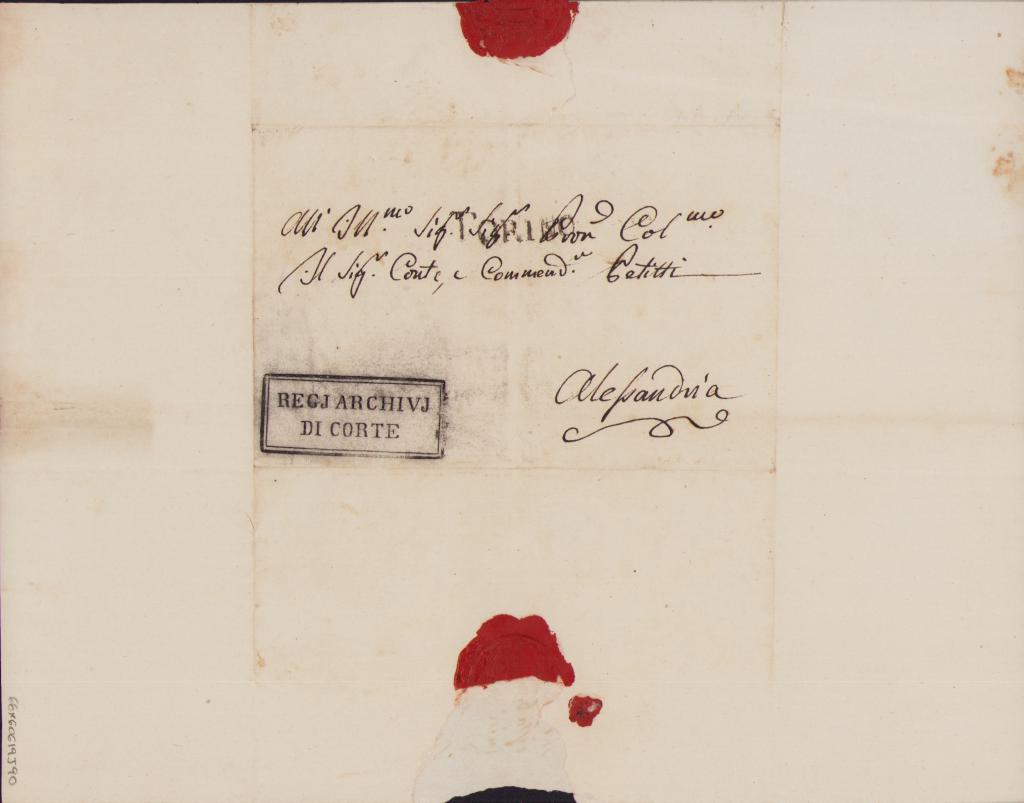 All' Ill.mo Sigr. Sigr. Pron Col.mo
TORINO
Il Sigr. Conte, e Commendre. Petitti
Alessandria
REGJ ARCHIVJ
DI CORTE